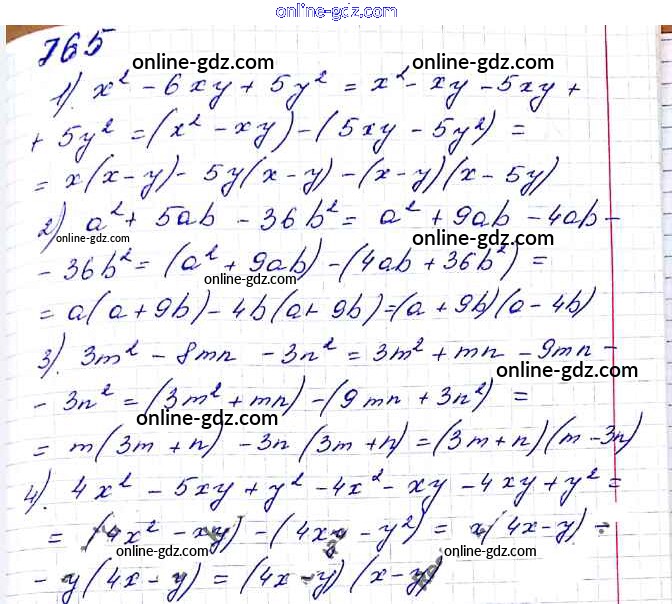 online-gdz.com
765
online-gdz.com
online-gdz.com
1). x² - 6xy + 5y² = x² - xy - 5xy +
+ 5y² = (x² - xy) - (5xy - 5y²) =
online-gdz.com
online-gdz.com
= x(x-y) - 5y(x-y) - (x-y)(x-5y)
2) a² + 5ab - 36b² = a² + 9ab - 4ab -
online-gdz.com
online-gdz.com
- 36b² = (a² + 9ab) - (4ab + 36b²) =
online-gdz.com
= a(a+9b) - 4b(a+9b) = (a+9b)(a-4b)
3). 3m² - 8mn - 3n² = 3m² + mn - 9mn -
online-gdz.com
- 3n² = (3m² + mn) - (9mn + 3n²) =
online-gdz.com
= m(3m+n) - 3n(3m+n) = (3m+n)(m-3n)
4). 4x² - 5xy + y² - 4x² - xy - 4xy + y² =
= (4x² - xy) - (4xy - y²) = x(4x-y) -
online-gdz.com
online-gdz.com
- y(4x-y) = (4x-y)(x-y)